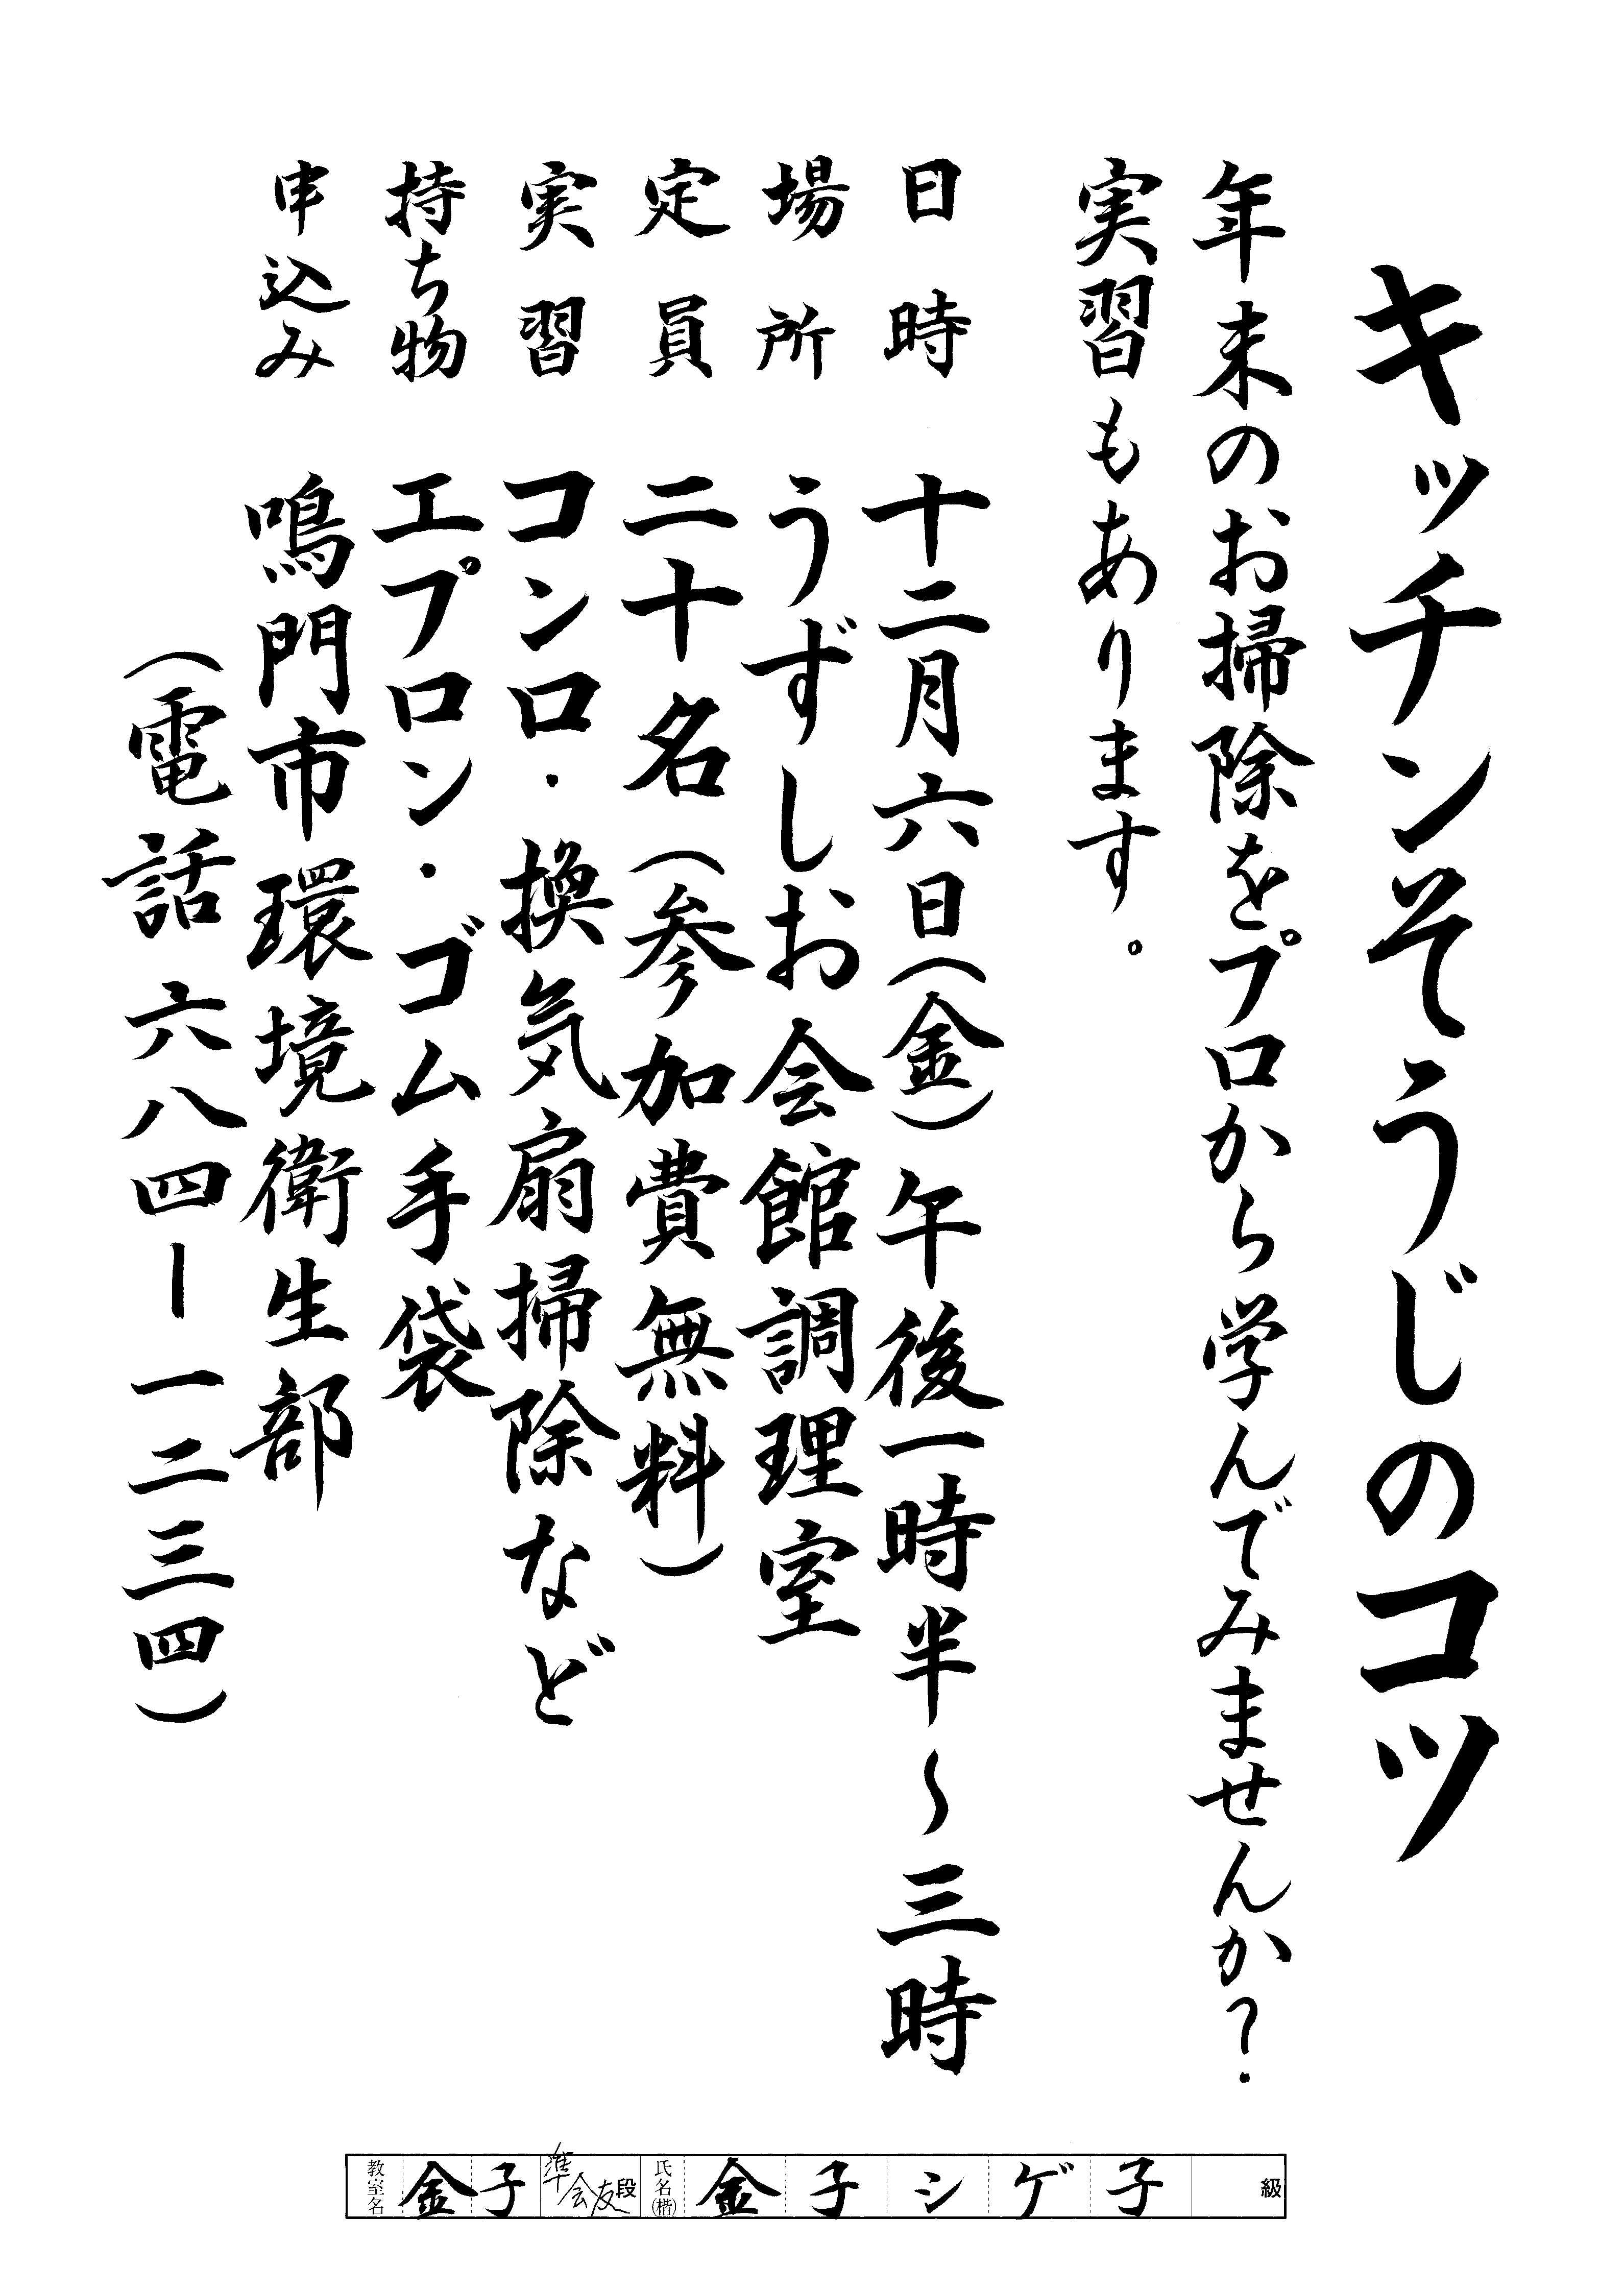 キッチンそうじのコツ
年末のお掃除をプロから学んでみませんか?
実習もあります。
日時 十二月六日(金)午後一時半〜三時
場所 うずしお会館調理室
定員 二十名(参加費無料)
実習 コンロ・換気扇掃除など
持ち物 エプロン・ゴム手袋
申込み 鳴門市環境衛生部
(電話六八四ー一二三四)
教室名 金子 準会友 段 氏名(楷) 金子シゲ子 級